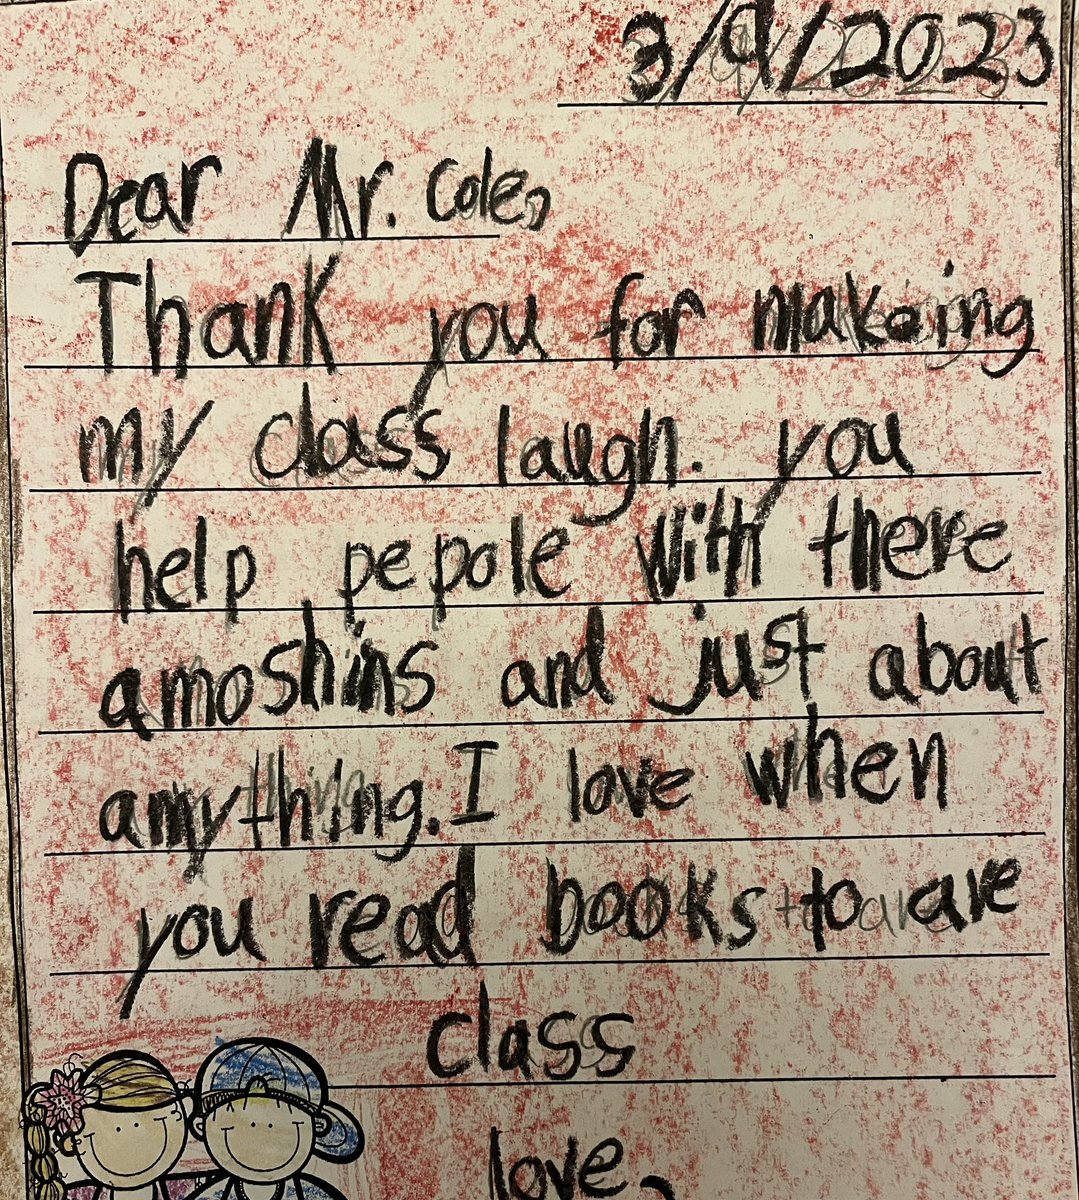 3/9/2023
Dear Mr. Cole,
Thank you for makeing
my class laugh. you
help pepole with there
amoshins and just about
amything. I love when
you read books to are
class
love,